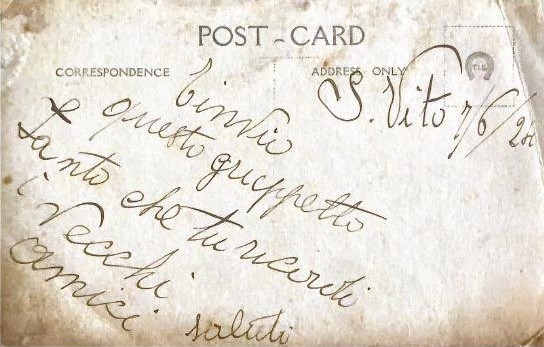 POST-CARD
CORRESPONDENCE
ADDRESS ONLY
S. Vito 7/6/
T'invio
questo gruppetto
Tanto che tu ricordi
i Vecchi
amici
saluti